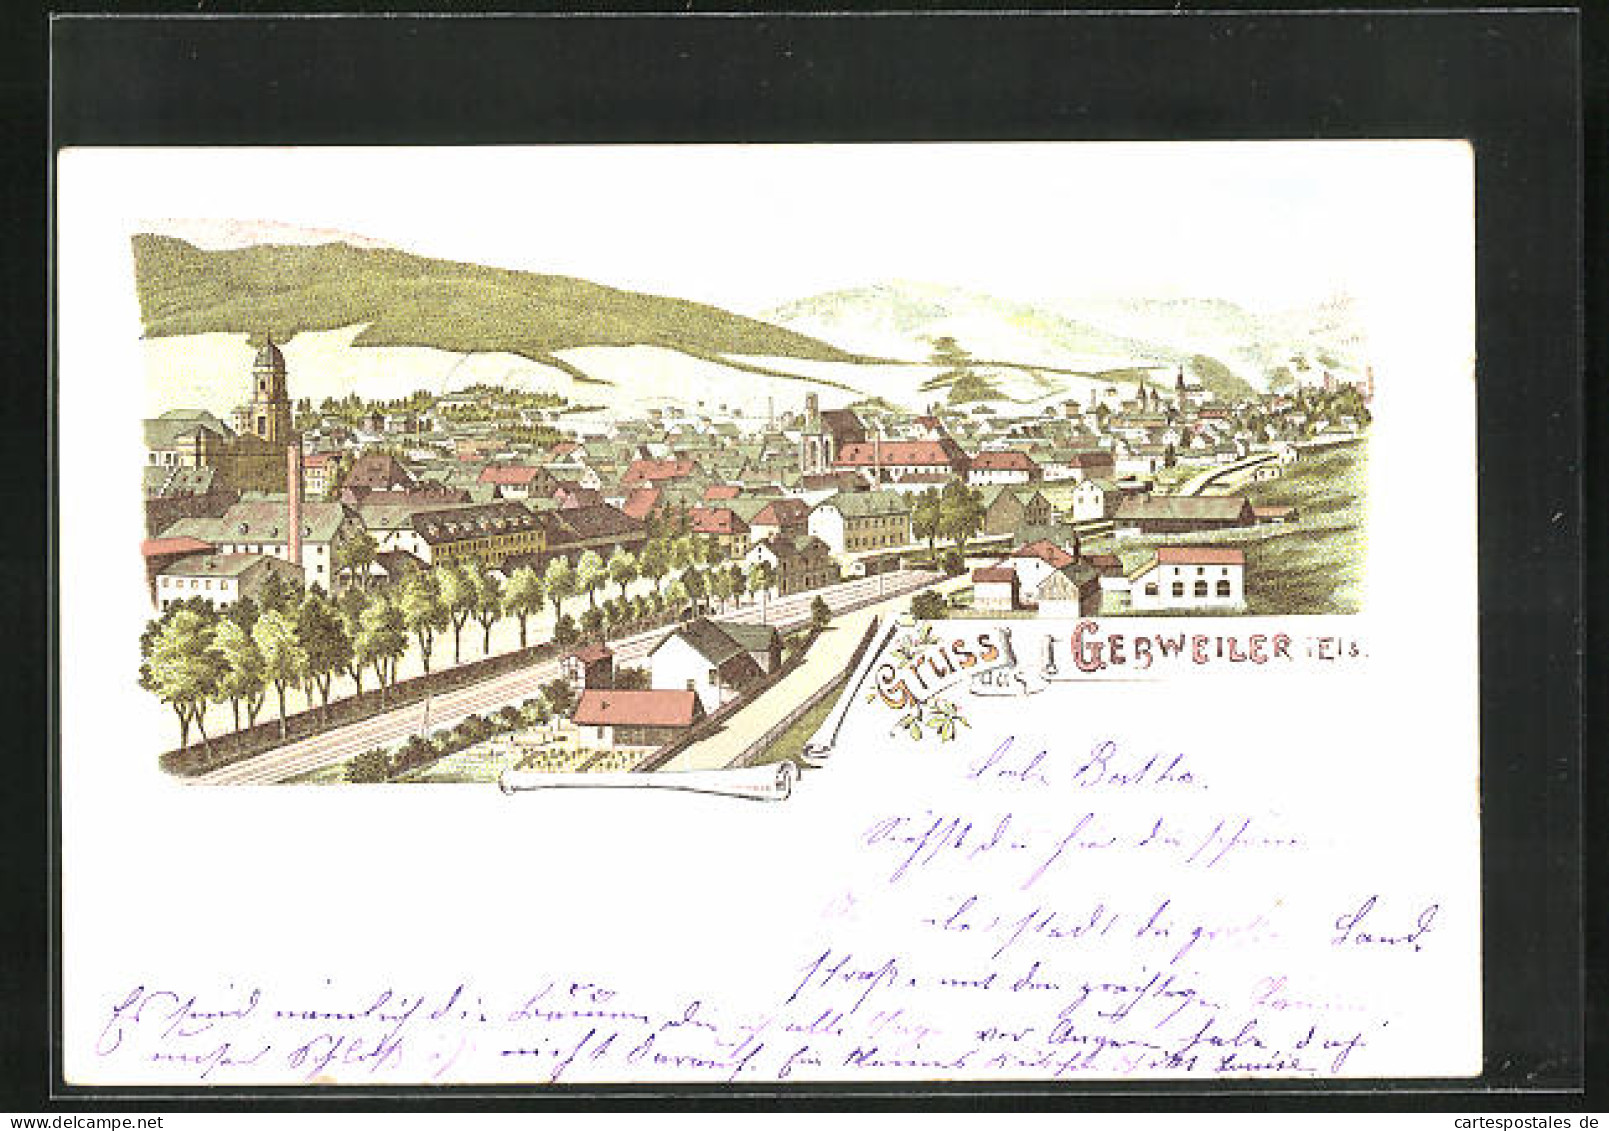 Gruss aus GEBWEILER i Els.
Liebe Bertha.
Siehst du hier die schöne
stadt die große Land
straße mit den prächtigen
Es sind nämlich die Bäume die ich alle Tage vor Augen habe doch
unser Schloß ist nicht darauf. Ein kleines
cartespostales de